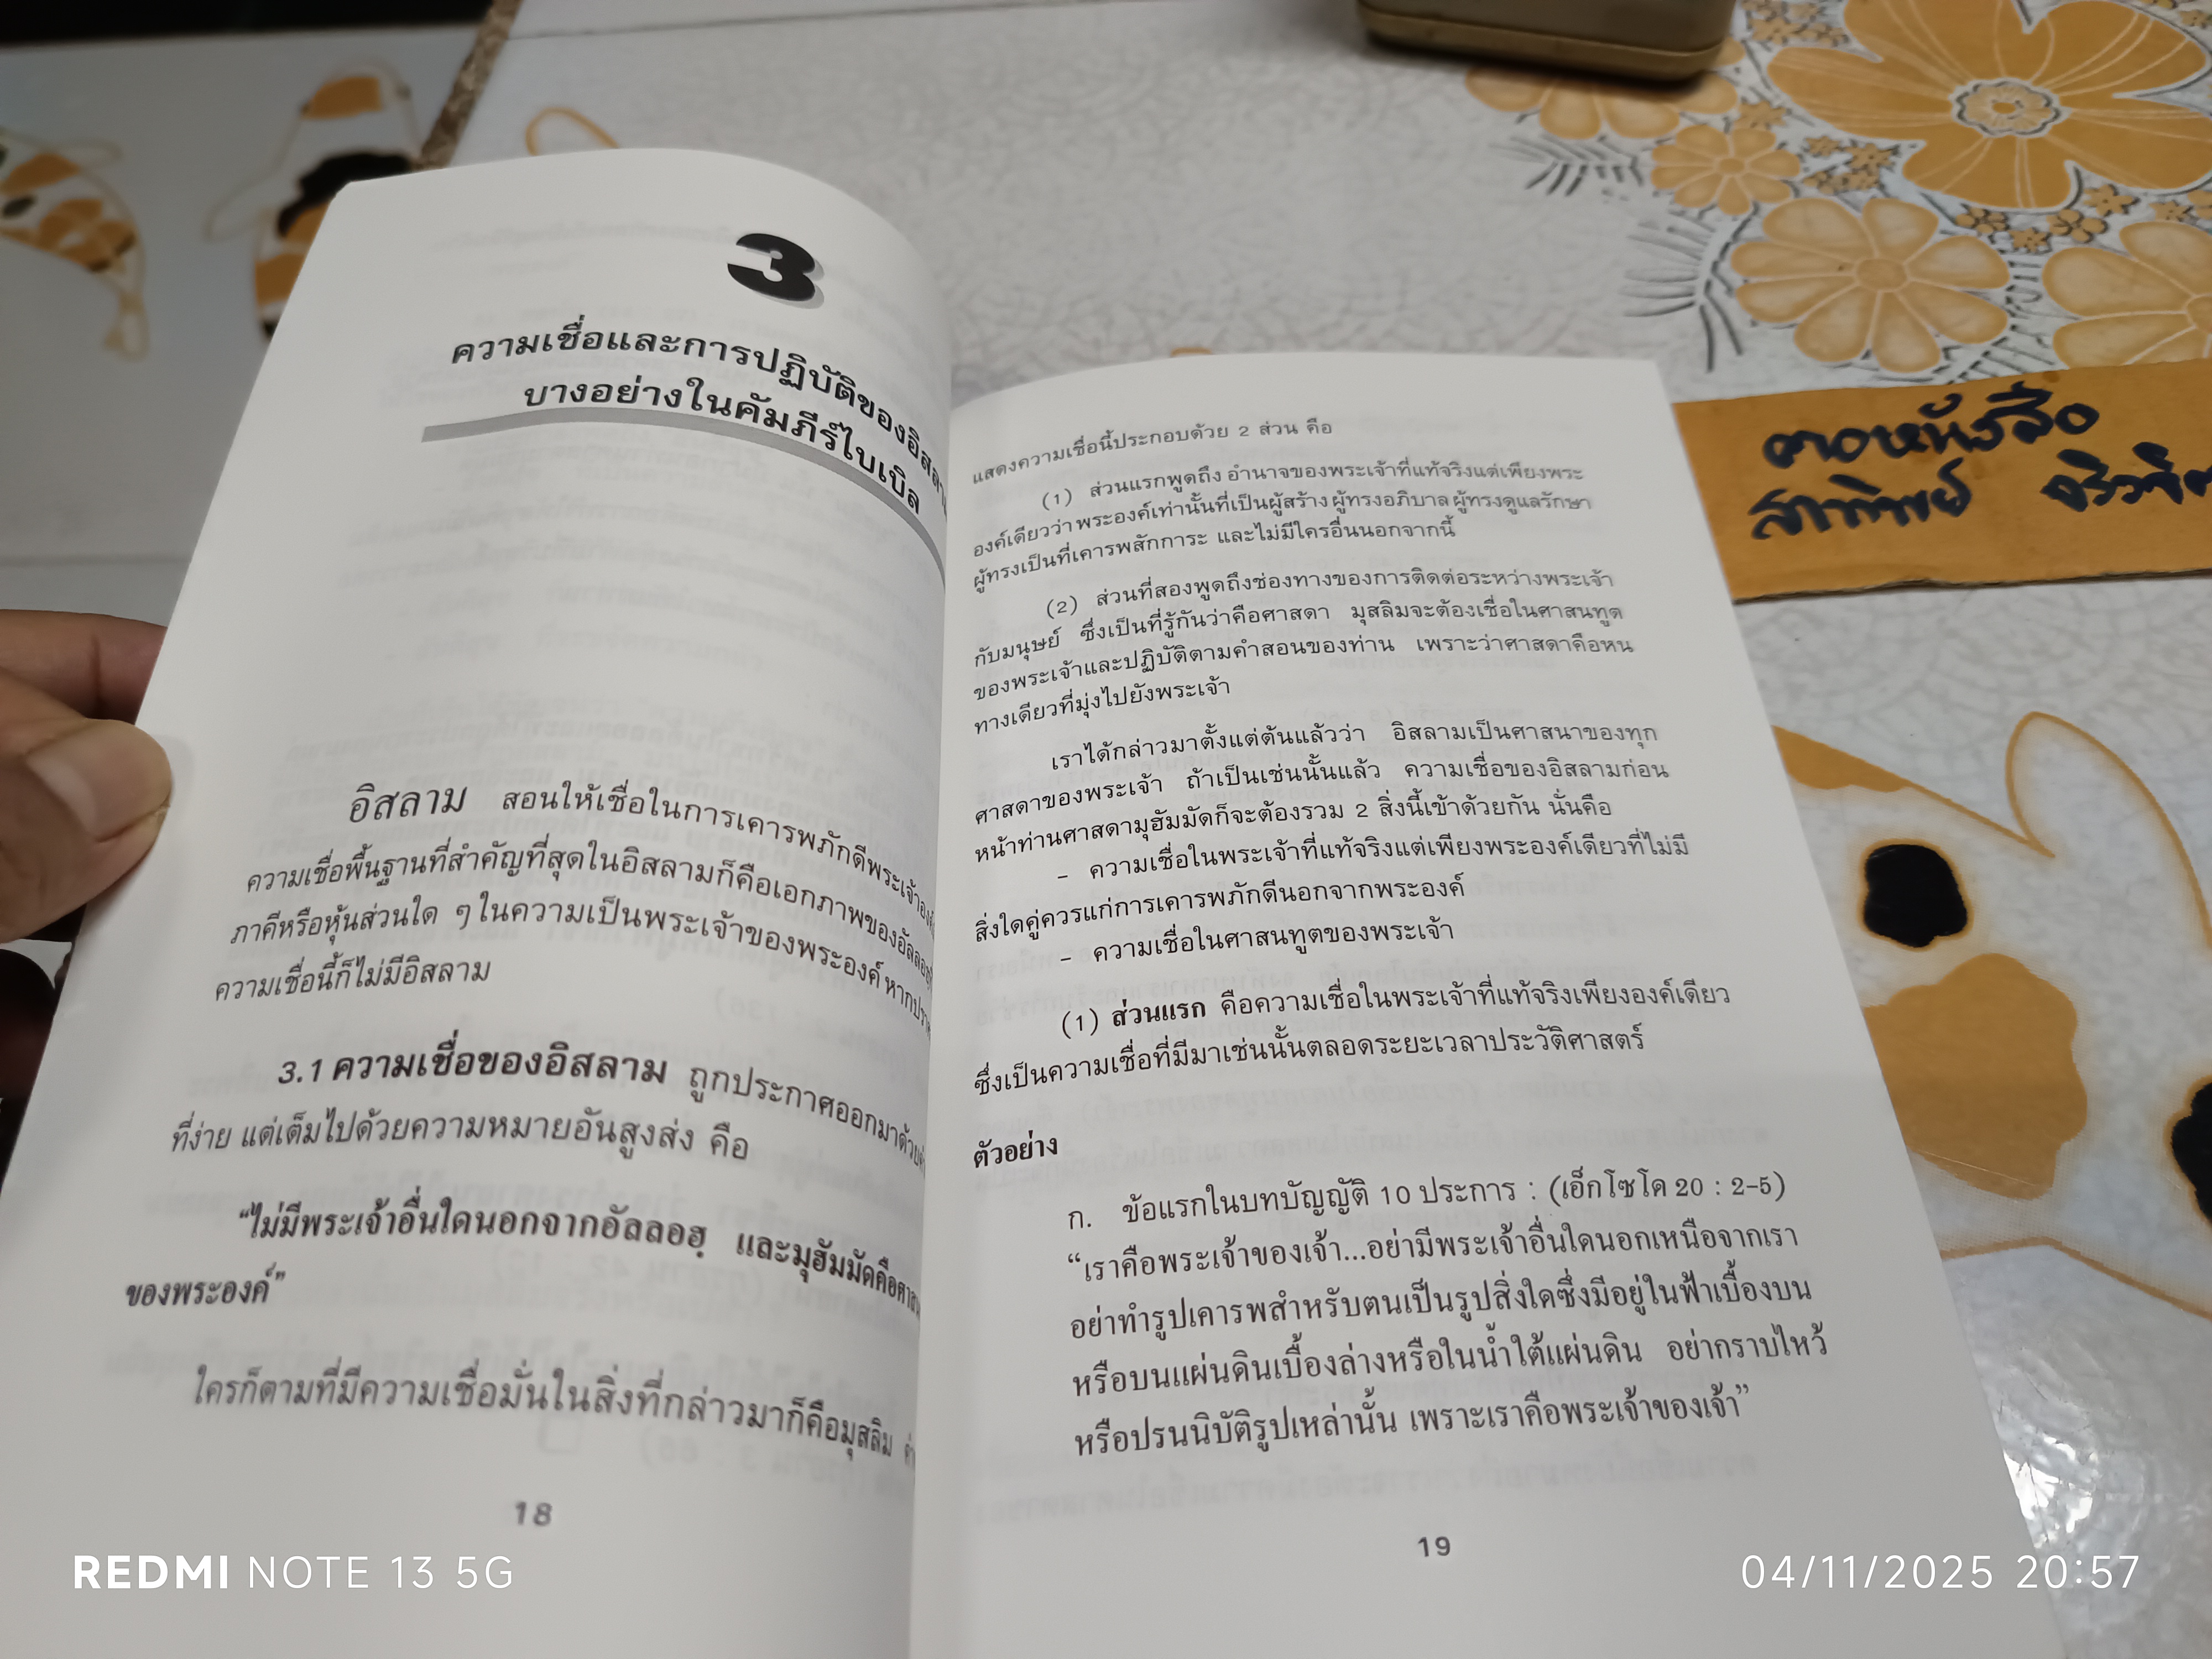 3
ความเชื่อและการปฏิบัติของอิสลาม
บางอย่างในคัมภีร์ไบเบิล
อิสลาม สอนให้เชื่อในการเคารพภักดีพระเจ้าองค์
ความเชื่อพื้นฐานที่สำคัญที่สุดในอิสลามก็คือเอกภาพของอัลลอฮฺ
ภาคีหรือหุ้นส่วนใด ๆ ในความเป็นพระเจ้าของพระองค์ หากปรา
ความเชื่อนี้ก็ไม่มีอิสลาม
3.1 ความเชื่อของอิสลาม ถูกประกาศออกมาด้วย
ที่ง่าย แต่เต็มไปด้วยความหมายอันสูงส่ง คือ
“ไม่มีพระเจ้าอื่นใดนอกจากอัลลอฮฺ และมุฮัมมัดคือศาสน
ของพระองค์”
ใครก็ตามที่มีความเชื่อมั่นในสิ่งที่กล่าวมาก็คือมุสลิม
18
แสดงความเชื่อนี้ประกอบด้วย 2 ส่วน คือ
(1) ส่วนแรกพูดถึง อำนาจของพระเจ้าที่แท้จริงแต่เพียงพระ
องค์เดียวว่า พระองค์เท่านั้นที่เป็นผู้สร้าง ผู้ทรงอภิบาล ผู้ทรงดูแลรักษา
ผู้ทรงเป็นที่เคารพสักการะ และไม่มีใครอื่นนอกจากนี้
(2) ส่วนที่สองพูดถึงช่องทางของการติดต่อระหว่างพระเจ้า
กับมนุษย์ ซึ่งเป็นที่รู้กันว่าคือศาสดา มุสลิมจะต้องเชื่อในศาสนทูต
ของพระเจ้าและปฏิบัติตามคำสอนของท่าน เพราะว่าศาสดาคือหน
ทางเดียวที่มุ่งไปยังพระเจ้า
เราได้กล่าวมาตั้งแต่ต้นแล้วว่า อิสลามเป็นศาสนาของทุก
ศาสดาของพระเจ้า ถ้าเป็นเช่นนั้นแล้ว ความเชื่อของอิสลามก่อน
หน้าท่านศาสดามุฮัมมัดก็จะต้องรวม 2 สิ่งนี้เข้าด้วยกัน นั่นคือ
- ความเชื่อในพระเจ้าที่แท้จริงแต่เพียงพระองค์เดียวที่ไม่มี
สิ่งใดคู่ควรแก่การเคารพภักดีนอกจากพระองค์
- ความเชื่อในศาสนทูตของพระเจ้า
(1) ส่วนแรก คือความเชื่อในพระเจ้าที่แท้จริงเพียงองค์เดียว
ซึ่งเป็นความเชื่อที่มีมาเช่นนั้นตลอดระยะเวลาประวัติศาสตร์
ตัวอย่าง
ก. ข้อแรกในบทบัญญัติ 10 ประการ : (เอ็กโซโด 20 : 2-5)
“เราคือพระเจ้าของเจ้า...อย่ามีพระเจ้าอื่นใดนอกเหนือจากเรา
อย่าทำรูปเคารพสำหรับตนเป็นรูปสิ่งใดซึ่งมีอยู่ในฟ้าเบื้องบน
หรือบนแผ่นดินเบื้องล่างหรือในน้ำใต้แผ่นดิน อย่ากราบไหว้
หรือปรนนิบัติรูปเหล่านั้น เพราะเราคือพระเจ้าของเจ้า”
19
REDMI NOTE 13 5G
04/11/2025 20:57